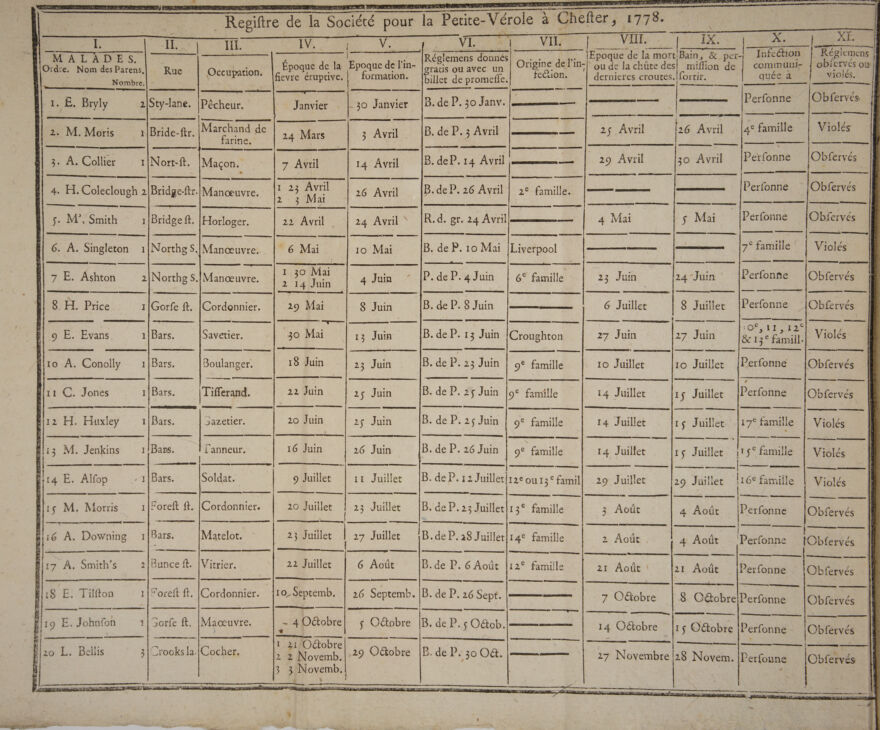 Regiſtre de la Société pour la Petite-Vérole à Cheſter, 1778.
I. II. III. IV. V. VI. VII. VIII. IX. X. XI.
MALADES. Ordre. Nom des Parens. Nombre. Rue Occupation. Époque de la fievre éruptive. Epoque de l'information. Réglemens donnés gratis ou avec un billet de promeſſe. Origine de l'infection. Epoque de la mort ou de la chûte des dernieres croutes. Bain, & permiſſion de ſortir. Infection communiquée à Réglemens obſervés ou violés.
1. E. Bryly 2 Sty-lane. Pêcheur. Janvier 30 Janvier B. de P. 30 Janv. Perſonne Obſervés
2. M. Moris 1 Bride-ſtr. Marchand de farine. 24 Mars 3 Avril B. de P. 3 Avril 25 Avril 26 Avril 4e famille Violés
3. A. Collier 1 Nort-ſt. Maçon. 7 Avril 14 Avril B. de P. 14 Avril 29 Avril 30 Avril Perſonne Obſervés
4. H. Coleclough 2 Bridge-ſtr. Manœuvre. 1 23 Avril 2 3 Mai 26 Avril B. de P. 26 Avril 2e famille. Perſonne Obſervés
5. M'. Smith 1 Bridge ſt. Horloger. 22 Avril 24 Avril R. d. gr. 24 Avril 4 Mai 5 Mai Perſonne Obſervés
6. A. Singleton 1 Northg S. Manœuvre. 6 Mai 10 Mai B. de P. 10 Mai Liverpool 7e famille Violés
7 E. Ashton 2 Northg S. Manœuvre. 1 30 Mai 2 14 Juin 4 Juin P. de P. 4 Juin 6e famille 23 Juin 24 Juin Perſonne Obſervés
8 H. Price 1 Gorſe ſt. Cordonnier. 29 Mai 8 Juin B. de P. 8 Juin 6 Juillet 8 Juillet Perſonne Obſervés
9 E. Evans 1 Bars. Savetier. 30 Mai 13 Juin B. de P. 13 Juin Croughton 27 Juin 27 Juin 10e, 11, 12e & 13e famill. Violés
10 A. Conolly 1 Bars. Boulanger. 18 Juin 23 Juin B. de P. 23 Juin 9e famille 10 Juillet 10 Juillet Perſonne Obſervés
11 C. Jones 1 Bars. Tiſſerand. 22 Juin 25 Juin B. de P. 25 Juin 9e famille 14 Juillet 15 Juillet Perſonne Obſervés
12 H. Huxley 1 Bars. Gazetier. 20 Juin 25 Juin B. de P. 25 Juin 9e famille 14 Juillet 15 Juillet 17e famille Violés
13 M. Jenkins 1 Bars. Tanneur. 16 Juin 26 Juin B. de P. 26 Juin 9e famille 14 Juillet 15 Juillet 15e famille Violés
14 E. Alſop 1 Bars. Soldat. 9 Juillet 11 Juillet B. de P. 12 Juillet 12e ou 13e famil 29 Juillet 29 Juillet 16e famille Violés
15 M. Morris 1 Foreſt ſt. Cordonnier. 20 Juillet 23 Juillet B. de P. 23 Juillet 13e famille 3 Août 4 Août Perſonne Obſervés
16 A. Downing 1 Bars. Matelot. 23 Juillet 27 Juillet B. de P. 28 Juillet 14e famille 2 Août 4 Août Perſonne Obſervés
17 A. Smith's 2 Bunce ſt. Vitrier. 22 Juillet 6 Août B. de P. 6 Août 12e famille 21 Août 21 Août Perſonne Obſervés
18 E. Tilſton 1 Foreſt ſt. Cordonnier. 10 Septemb. 26 Septemb. B. de P. 26 Sept. 7 Octobre 8 Octobre Perſonne Obſervés
19 E. Johnſon 1 Gorſe ſt. Maœuvre. 4 Octobre 5 Octobre B. de P. 5 Octob. 14 Octobre 15 Octobre Perſonne Obſervés
20 L. Bellis 3 Crooks la. Cocher. 1 21 Octobre 2 2 Novemb. 3 3 Novemb. 29 Octobre B. de P. 30 Oct. 27 Novembre 28 Novem. Perſoune Obſervés